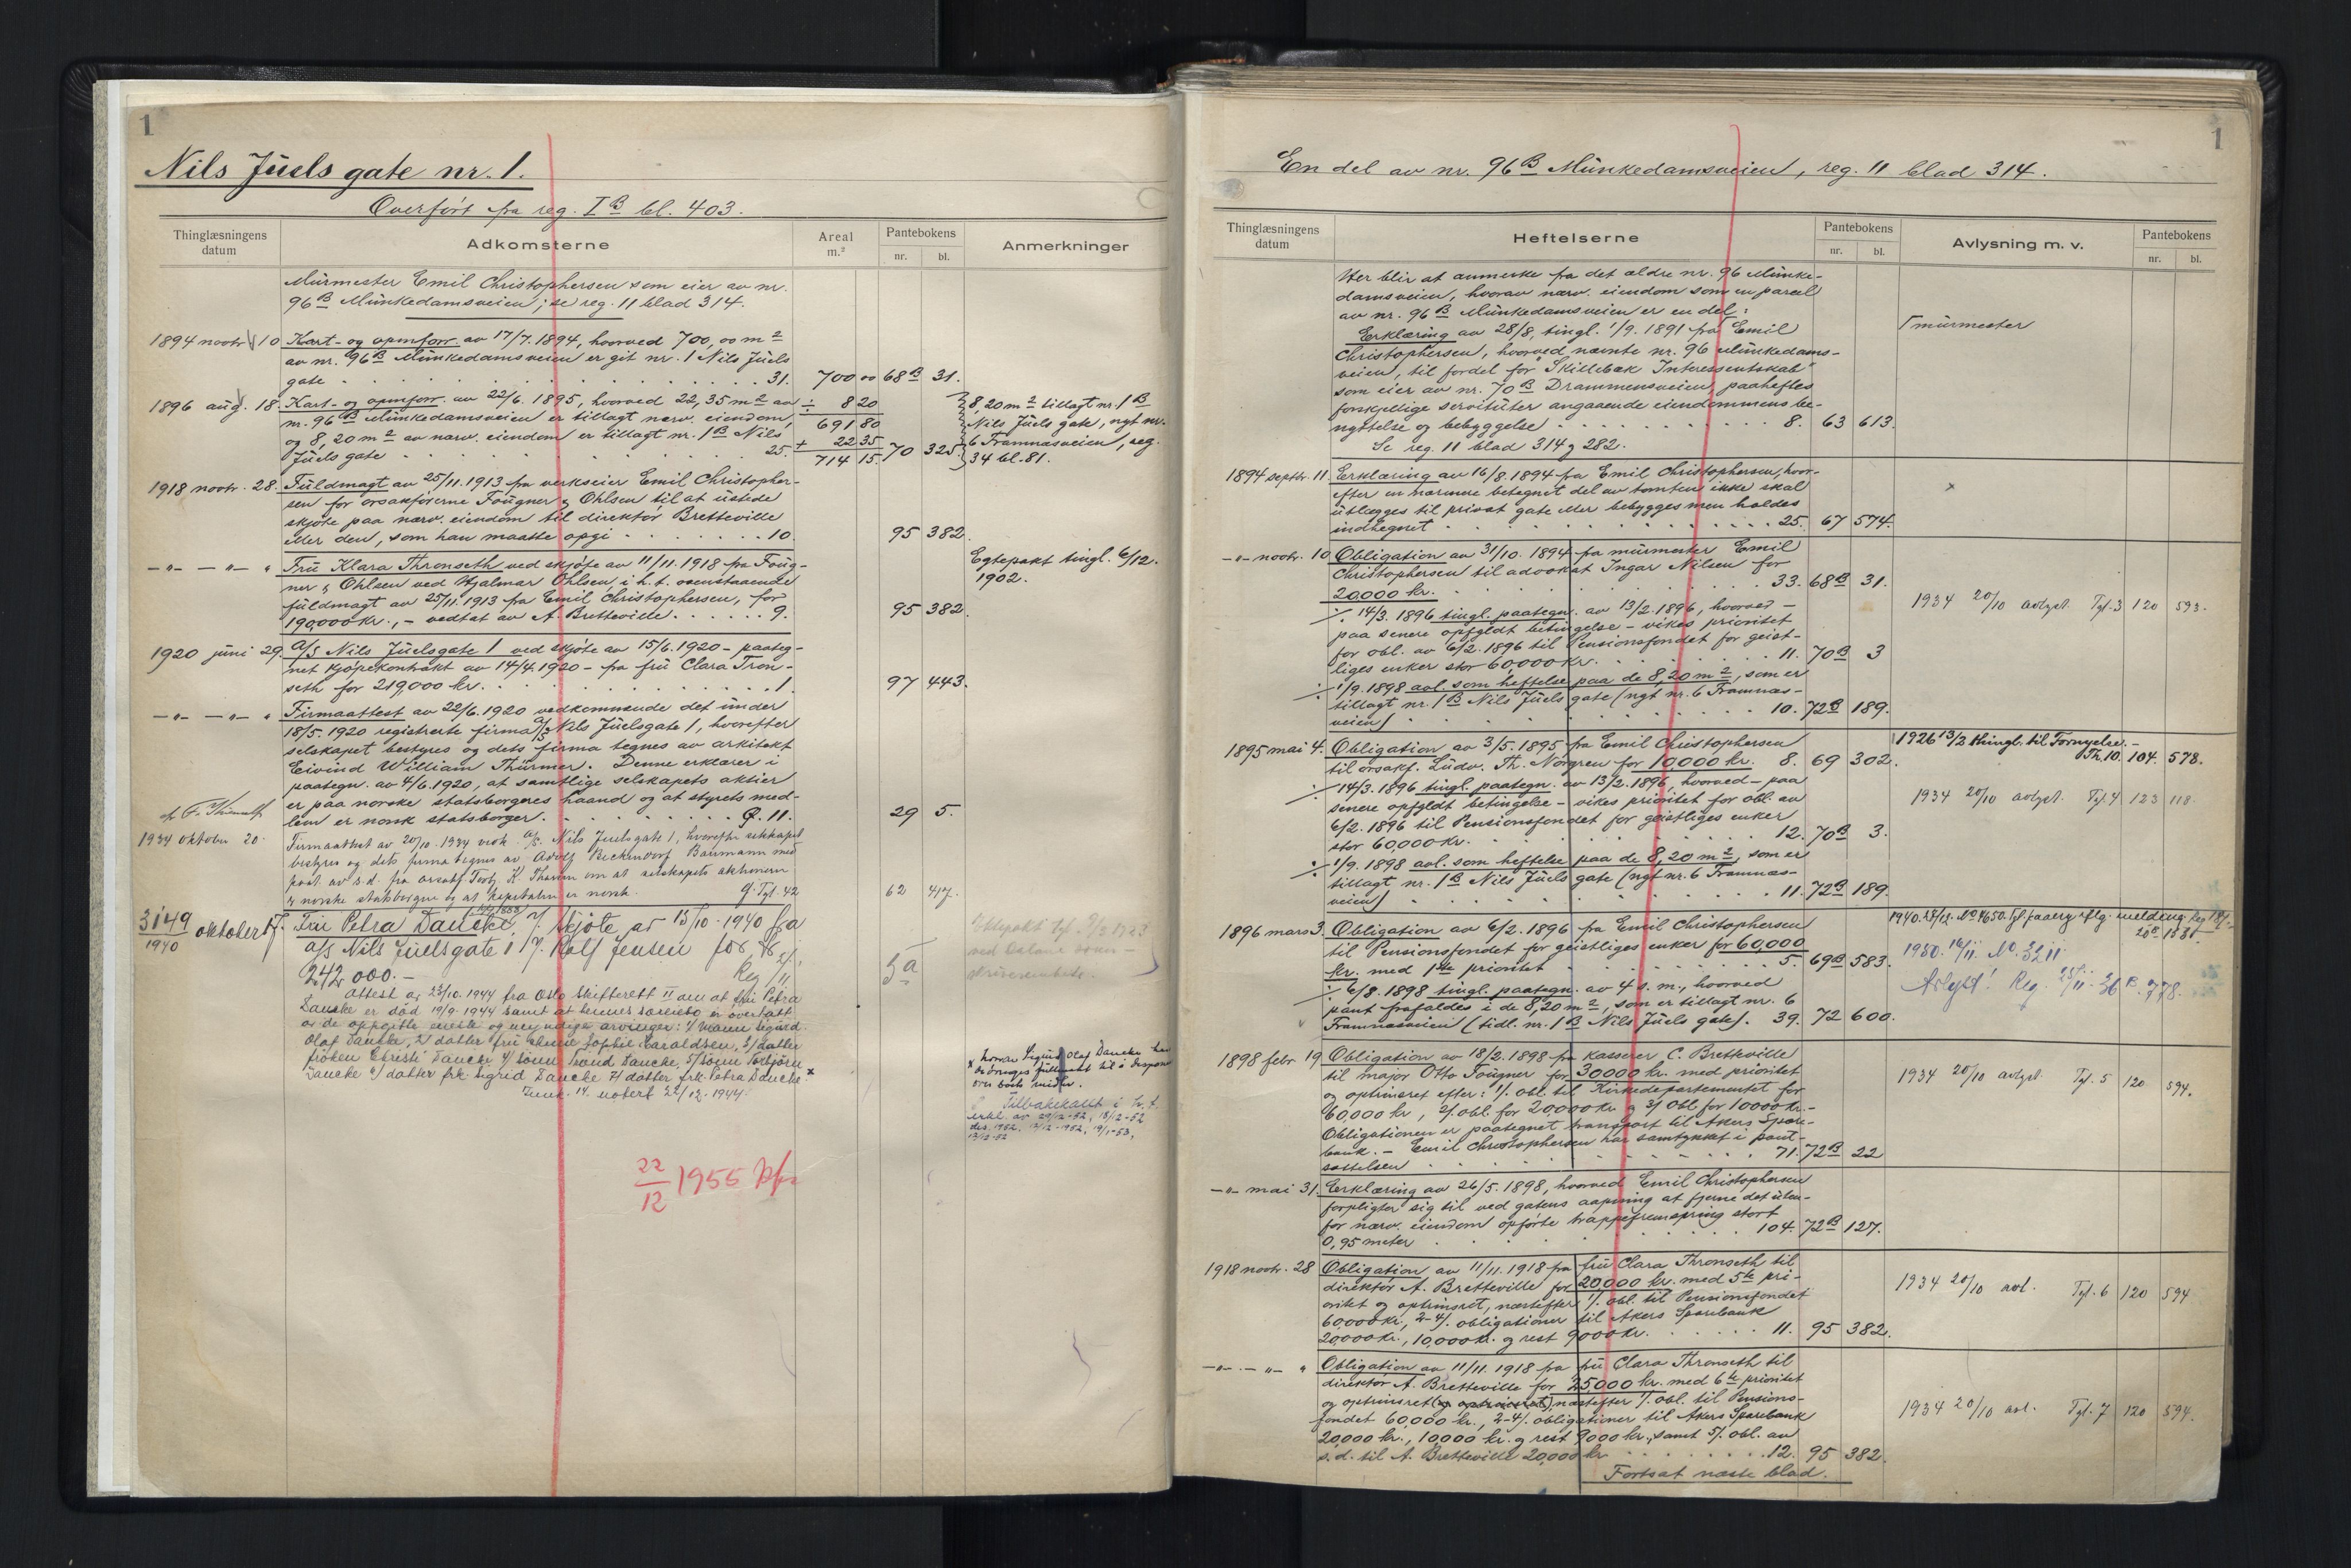 1
Nils Juels gate nr. 1.
Overført fra reg. I B bl. 403.
Thinglæsningens datum
Adkomsterne
Areal m.²
Pantebokens
nr. bl.
Anmerkninger
Murmester Emil Christophersen som eier av nr.
96 B Munkedamsveien; se reg. 11 blad 314.
1894 novbr 10 Kart- og opmforr. av 17/7. 1894, hvorved 700,00 m²
av nr. 96 B Munkedamsveien er git nr. 1 Nils Juels
gate 31. 700 00 68 B 31.
1896 aug. 18. Kart- og opmforr. av 22/6. 1895, hvorved 22,35 m² av ÷ 8 20
nr. 96 B Munkedamsveien er tillagt nærv. eiendom, 691 80
og 8,20 m² av nærv. eiendom er tillagt nr. 1 B Nils + 22 35
Juels gate 25. 714 15. 70 325.
8,20 m² tillagt nr. 1 B
Nils Juels gate, nyt nr.
6 Framnæsveien, reg.
34 bl. 81.
1918 novbr. 28. Fuldmagt av 25/11. 1913 fra verkseier Emil Christopher-
sen for orsakførerne Fougner & Ohlsen til at utstede
skjøte paa nærv. eiendom til direktør Bretteville
eller den, som han maatte opgi 10. 95 382.
—"— —"— " Fru Klara Thronseth ved skjøte av 11/11. 1918 fra Foug-
ner & Ohlsen ved Hjalmar Ohlsen, i h. t. ovenstaaende
fuldmagt av 25/11. 1913 fra Emil Christophersen, for
190,000 kr., – vedtat av A. Bretteville. 9. 95 382.
Egtepakt tingl. 6/12.
1902.
1920 juni 29. A/S Nils Juelsgate 1 ved skjøte av 15/6. 1920 – paateg-
net kjøpekontrakt av 14/4. 1920 – fra fru Clara Tron-
seth for 219,000 kr. 1. 97 443.
—"— —"— " Firmaattest av 22/6. 1920 vedkommende det under
18/5. 1920 registrerte firma A/S Nils Juelsgate 1, hvorefter
selskapet bestyres og dets firma tegnes av arkitekt
Eivind William Thürmer. Denne erklærer i
paategn. av 4/6. 1920, at samtlige selskapets aktier
er paa norske statsborgeres haand og at styrets med-
lem er norsk statsborger. Q. 11. 29 5.
1934 oktober 20. Firmaattest av 20/10. 1934 vedk. A/S Nils Juelsgate 1, hvorefter selskapet
bestyres og dets firma tegnes av Adolf Beckendorf Baumann med
er norske statsborgere og at kapitalen er norsk. Q. Tgl. 42 62 47.
3149/1940 oktober 17. Fru Petra Dancke, v/ skjøte av 15/10-1940 fra
a/s Nils Juelsgate 1 v/ Rolf Jensen for kr
242 000.– Reg 11 5a
Attest av 23/10. 1944 fra Oslo Skifterett II om at fru Petra
Dancke er død 19/9. 1944 samt at hennes særeiebo er overtatt
av de oppgitte eneste og myndige arvinger: 1/ mann Sigurd
Olaf Dancke, 2/ datter fru Anne Sophie Haraldsen, 3/ datter
frøken Christi Dancke 4/ sønn Trond Dancke, 5/ sønn Torbjørn
Dancke 6/ datter frk. Sigrid Dancke 7/ datter frk. Petra Dancke. x
Jnr. 14. notert 22/12. 1944.
Ektepakt tgl. 9/3 1923
x hvorav Sigurd Olaf Dancke har
de øvriges fullmakt til å disponere
over boets midler.
Tilbakekallt i h. t.
erkl. av 29/12-52, 18/12-52
des. 1952, 17/12-1952, 19/1-53,
13/12-52
22/12 1955
1
En del av nr. 96 B Munkedamsveien, reg. 11 blad 314.
Thinglæsningens datum
Heftelserne
Pantebokens
nr. bl.
Avlysning m. v.
Pantebokens
nr. bl.
Her blir at anmerke fra det ældre nr. 96 Munke-
damsveien, hvorav nærv. eiendom som en parcel
av nr. 96 B Munkedamsveien er en del:
Erklæring av 28/8, tingl. 1/9. 1891 fra Emil
murmester
Christophersen, hvorved nævnte nr. 96 Munkedams-
veien, til fordel for "Skillebæk Interessentskab"
som eier av nr. 70 B Drammensveien, paaheftes
forskjellige servituter angaaende eiendommens be-
nyttelse og bebyggelse 8. 63 613.
Se reg. 11 blad 314 & 282.
1894 septbr. 11. Erklæring av 16/8. 1894 fra Emil Christophersen, hvor-
efter en nærmere betegnet del av tomten ikke skal
utlægges til privat gate eller bebygges men holdes
indhegnet 25. 67 574.
x
—"— novbr. 10 Obligation av 31/10. 1894 fra murmester Emil
Christophersen til advokat Ingar Nilsen for
20,000 kr. 33. 68 B 31.
1934 20/10 avlyst. Tgl. 3 120 593.
÷ 14/3. 1896 tingl. paategn. av 13/2. 1896, hvorved –
paa senere opfyldt betingelse – vikes prioritet
for obl. av 6/2. 1896 til Pensionsfondet for geist-
liges enker stor 60,000 kr. 11. 70 B 3
÷ 1/9. 1898 avl. som heftelse paa de 8,20 m², som er
tillagt nr. 1 B Nils Juels gate (nyt nr. 6 Framnæs-
veien) 10. 72 B 189.
1895 mai 4. Obligation av 3/5. 1895 fra Emil Christophersen
til orsakf. Ludv. Th. Norgren for 10,000 kr. 8. 69 302.
1926 13/2 thingl. til Fornyelse. –
Th. 10. 104. 578.
÷ 14/3. 1896 tingl. paategn. av 13/2. 1896, hvorved – paa
senere opfyldt betingelse – vikes prioritet for obl. av
6/2. 1896 til Pensionsfondet for geistliges enker
stor 60,000 kr. 12. 70 B 3.
1934 20/10 avlyst. Tgl. 4 123 118.
÷ 1/9. 1898 avl. som heftelse paa de 8,20 m², som er
tillagt nr. 1 B Nils Juels gate (nyt nr. 6 Framnæs-
veien) 11. 72 B 189.
1896 mars 3. Obligation av 6/2. 1896 fra Emil Christophersen
til Pensionsfondet for geistliges enker for 60,000
kr. med 1ste prioritet 5. 69 B 583.
1950. 16/11. No. 3211
Avlyst! Reg. 25/11. 36 B. 778.
÷ 6/8. 1898 tingl. paategn. av 4 s. m., hvorved
pant frafaldes i de 8,20 m², som er tillagt nr. 6
Framnæsveien (tidl. nr. 1 B Nils Juels gate). 39. 72 600.
1898 febr. 19 Obligation av 18/2. 1898 fra kasserer C. Bretteville
til major Otto Fougner for 30000 kr. med prioritet
og optrinsret efter: 1/. obl. til Kirkedepartementet for
60,000 kr, 2/. obl. for 20,000 kr. og 3/ obl for 10000 kr. –
Obligationen er paategnet transport til Akers Spare-
bank. – Emil Christophersen har samtykket i pant-
sættelsen 71. 72 B 22
1934 20/10 avlyst. Tgl. 5 120 594.
—"— mai 31. Erklæring av 26/5. 1898, hvorved Emil Christophersen
forpligter sig til ved gatens aapning at fjerne det uten-
for nærv. eiendom opførte trappefremspring stort
0,95 meter 104. 72 B 127.
1918 novbr. 28 Obligation av 11/11. 1918 fra fru Clara Thronseth til
direktør A. Bretteville for 20,000 kr. med 5te pri-
oritet og optrinsret, næstefter 1/. obl. til Pensionsfondet
60,000 kr., 2-4/. obligationer til Akers Sparebank
20,000 kr., 10,000 kr. og rest 9000 kr. 11. 95 382.
1934 20/10 avl. Tgl. 6 120 594
—"— —"— " Obligation av 11/11. 1918 fra fru Clara Thronseth til
direktør A. Bretteville for 25000 kr. med 6te prioritet
og optrinsret (og optrinsret), næstefter 1/. obl. til Pensions-
fondet 60,000 kr., 2-4/. obligationer til Akers Sparebank
20,000 kr., 10,000 kr. og rest 9000 kr., samt 5/. obl. av
s. d. til A. Bretteville 20,000 kr. 12. 95 382.
1934 20/10 avl. Tgl. 7 120 594.
Fortsat næste blad.